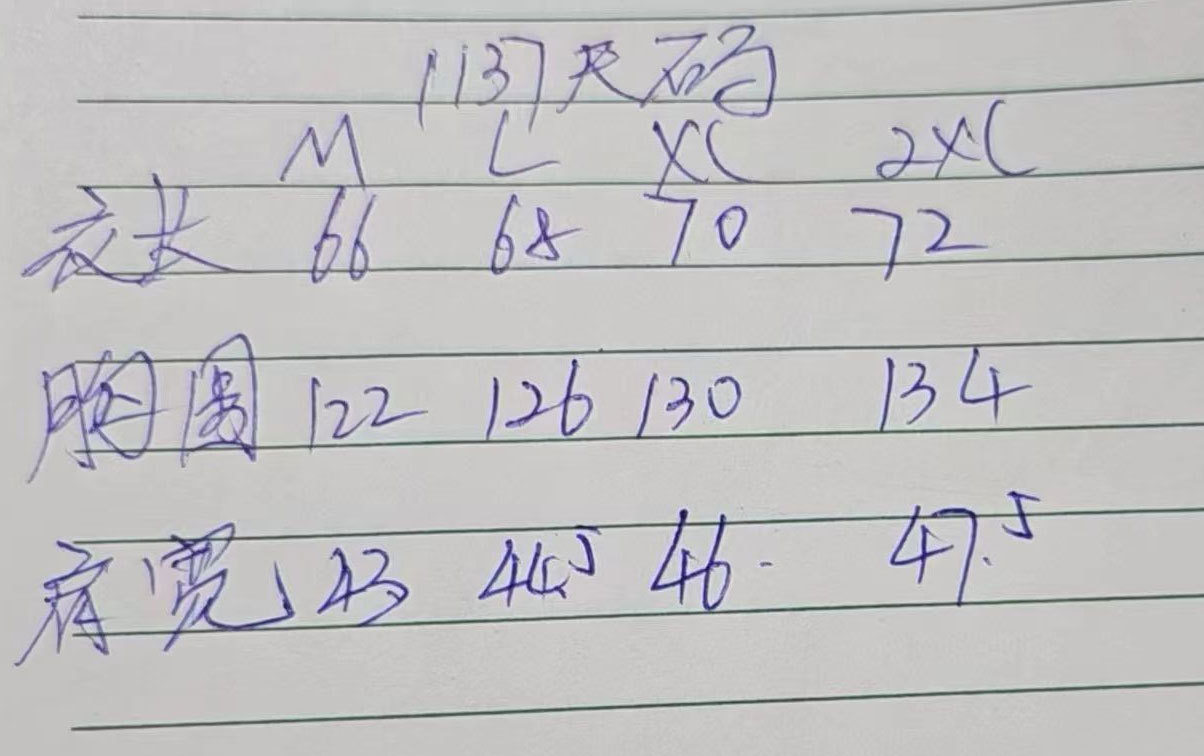 1137尺码
M L XL 2XL
衣长 66 68 70 72
胸围 122 126 130 134
肩宽 43 44.5 46 47.5